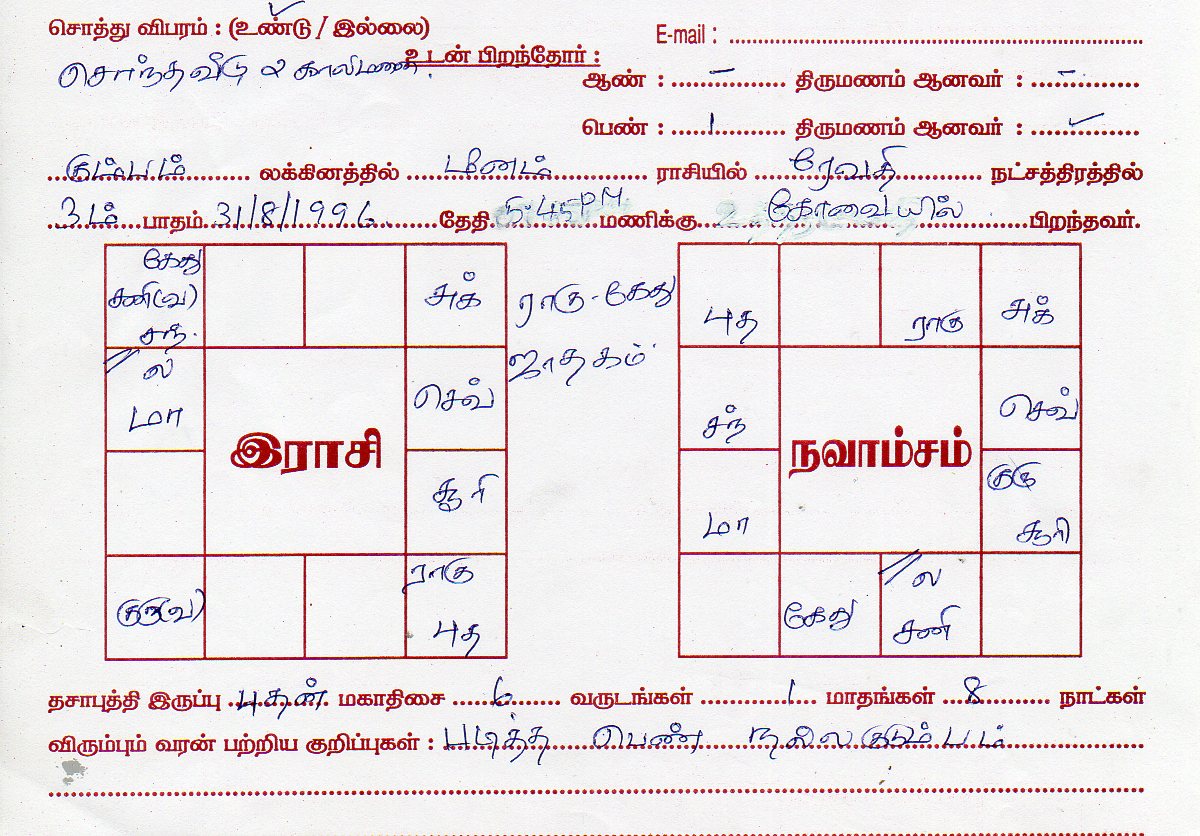 சொத்து விபரம் : (உண்டு / இல்லை)
E-mail : ....................
சொந்தவீடு & காலிமனை.
உடன் பிறந்தோர் :
ஆண் : ..... – ..... திருமணம் ஆனவர் : ..... – .....
பெண் : ..... 1 ..... திருமணம் ஆனவர் : ..... ✓ .....
கும்பம் லக்கினத்தில் மீனம் ராசியில் ரேவதி நட்சத்திரத்தில்
3ம் பாதம் 31/8/1996 தேதி 5.45PM மணிக்கு கோவையில் பிறந்தவர்.
கேது
சனி(வ)
சந்.
அக்
ல
மா
செவ்
இராசி
சூரி
குரு(வ)
ராகு
புத
ராகு - கேது
ஜாதகம்
புத
ராகு
அக்
சந்
செவ்
நவாம்சம்
மா
குரு
சூரி
கேது
ல
சனி
தசாபுத்தி இருப்பு புதன் மகாதிசை 6 வருடங்கள் 1 மாதங்கள் 8 நாட்கள்
விரும்பும் வரன் பற்றிய குறிப்புகள் : படித்த பெண் நல்ல குடும்பம்